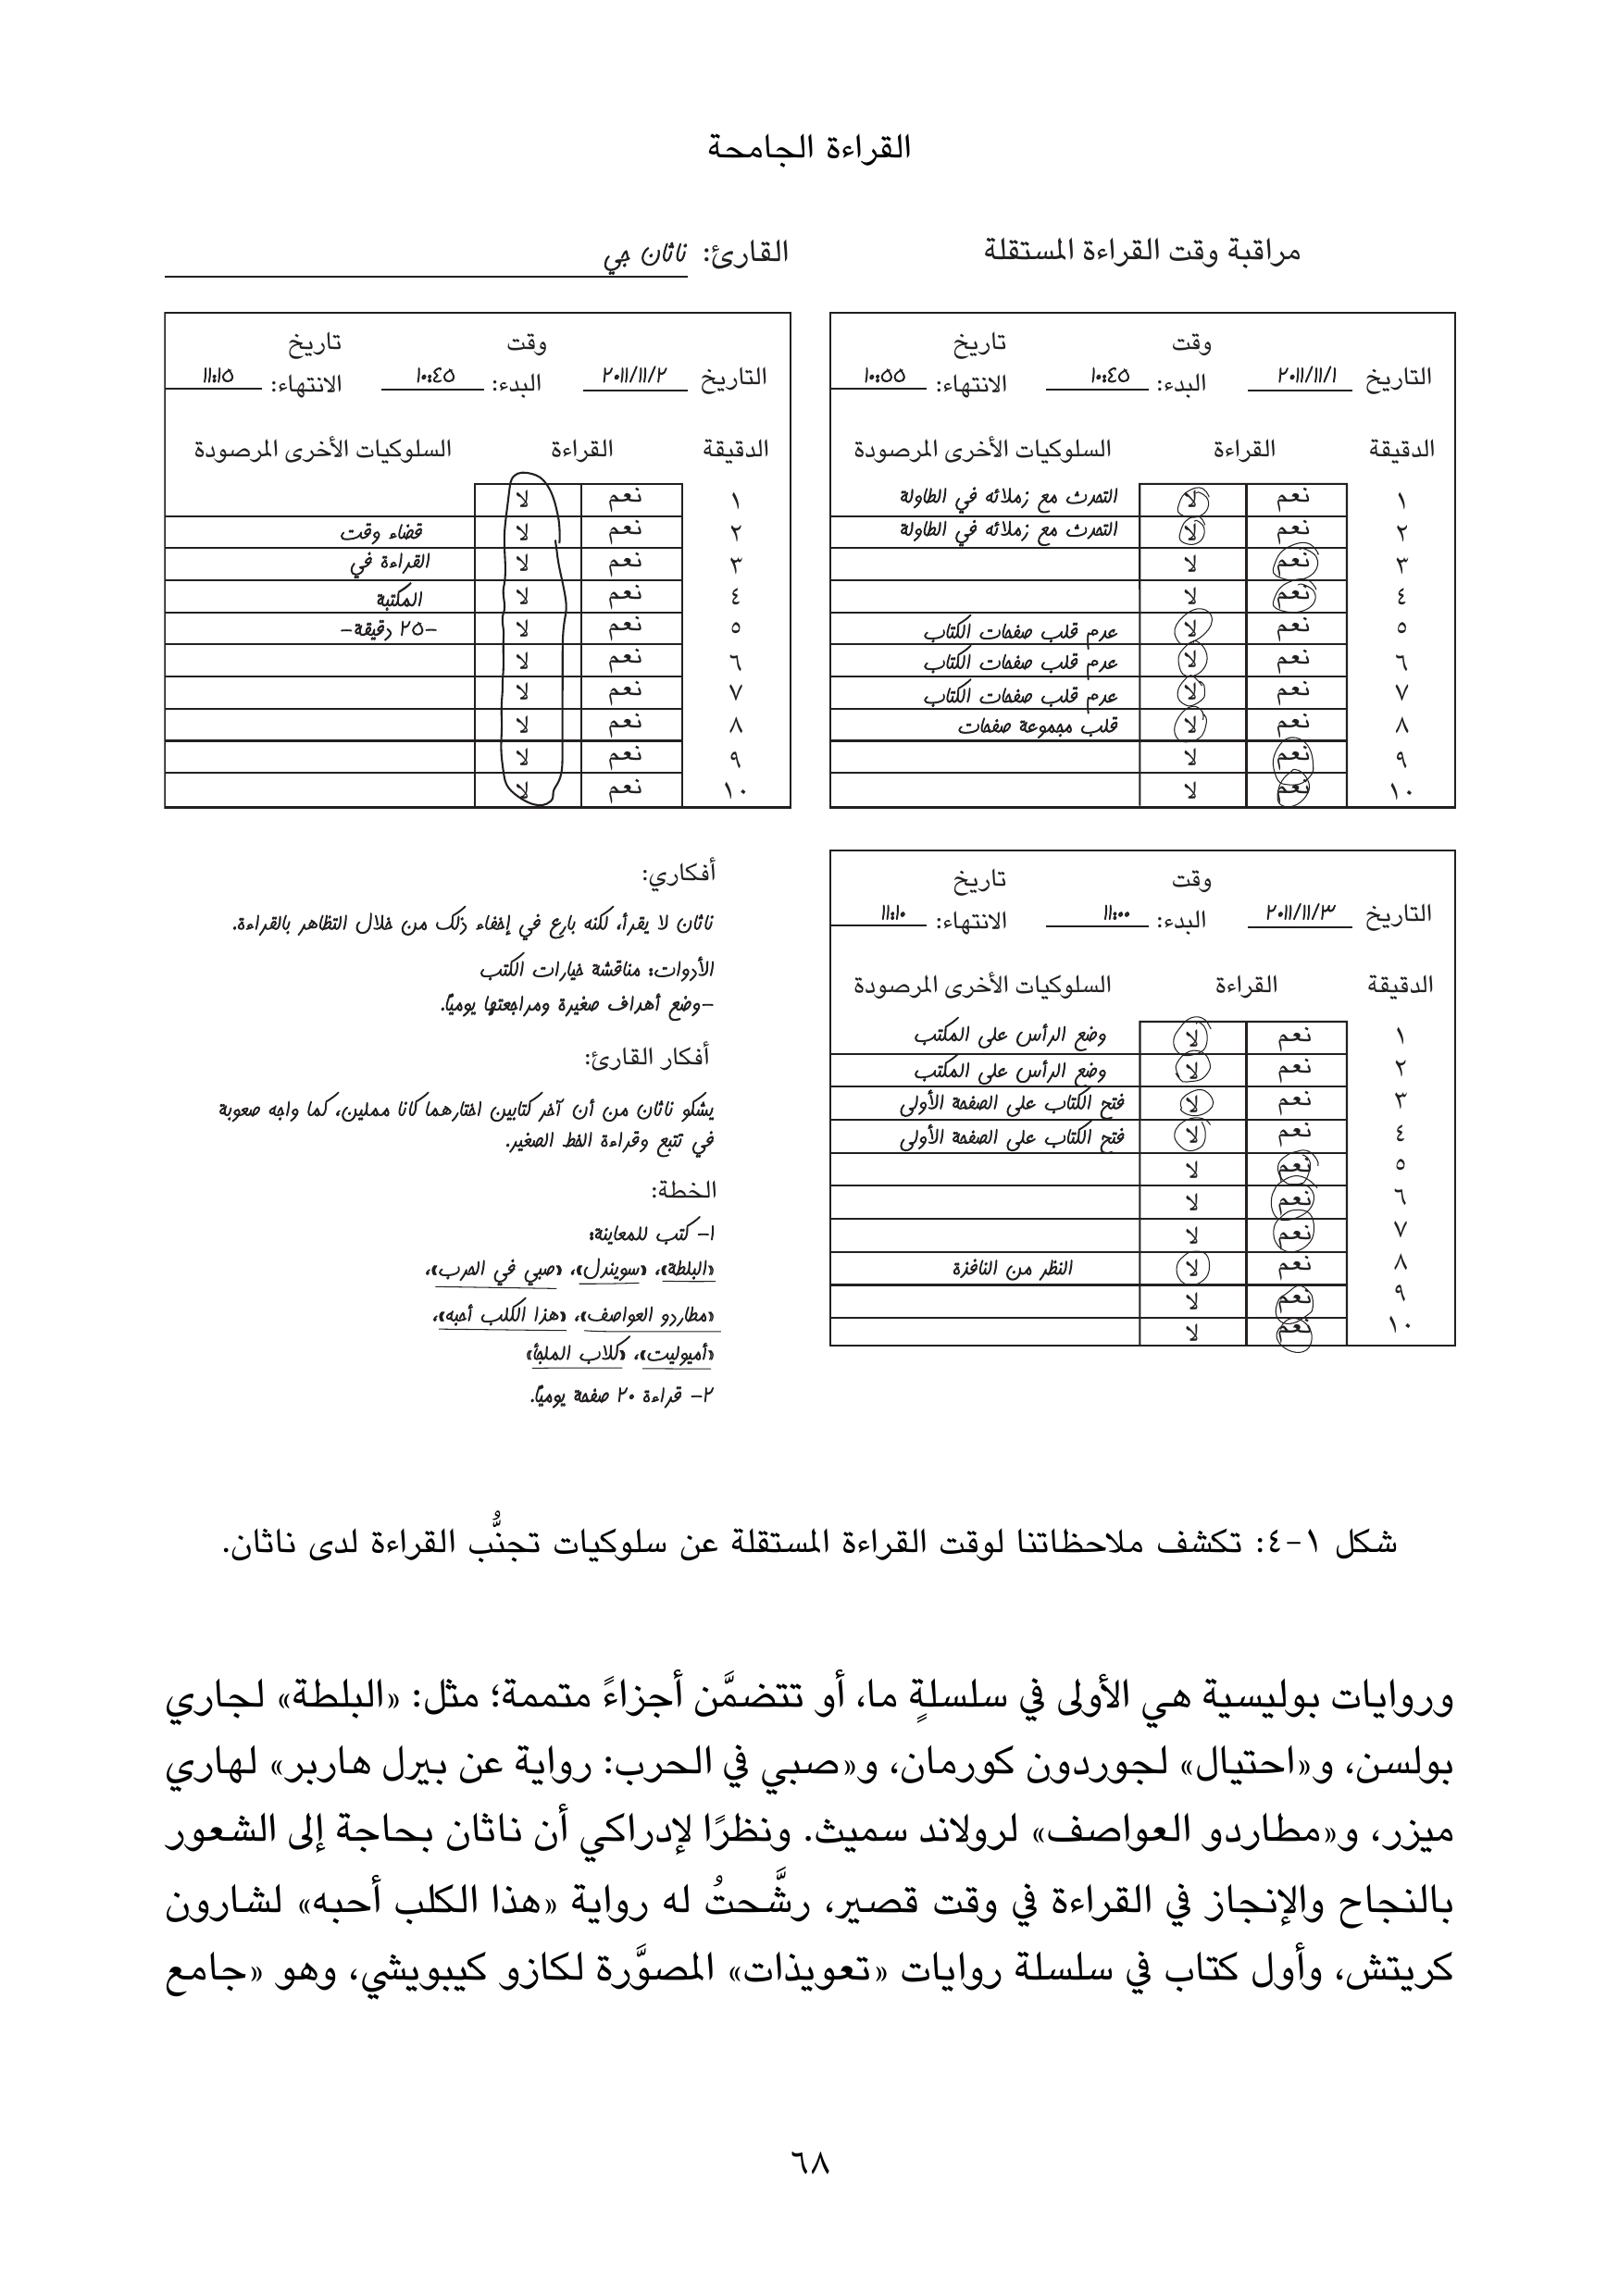 القراءة الجامحة
مراقبة وقت القراءة المستقلة
القارئ: ناثان جي
وقت تاريخ
التاريخ ٢٠١١/١١/١ البدء: ١٠:٤٥ الانتهاء: ١٠:٥٥
الدقيقة القراءة السلوكيات الأخرى المرصودة
١ نعم لا التحدث مع زملائه في الطاولة
٢ نعم لا التحدث مع زملائه في الطاولة
٣ نعم لا
٤ نعم لا
٥ نعم لا عدم قلب صفحات الكتاب
٦ نعم لا عدم قلب صفحات الكتاب
٧ نعم لا عدم قلب صفحات الكتاب
٨ نعم لا قلب مجموعة صفحات
٩ نعم لا
١٠ نعم لا
وقت تاريخ
التاريخ ٢٠١١/١١/٢ البدء: ١٠:٤٥ الانتهاء: ١١:١٥
الدقيقة القراءة السلوكيات الأخرى المرصودة
١ نعم لا
٢ نعم لا قضاء وقت
٣ نعم لا القراءة في
٤ نعم لا المكتبة
٥ نعم لا -٢٥ دقيقة-
٦ نعم لا
٧ نعم لا
٨ نعم لا
٩ نعم لا
١٠ نعم لا
وقت تاريخ
التاريخ ٢٠١١/١١/٣ البدء: ١١:٠٠ الانتهاء: ١١:١٠
الدقيقة القراءة السلوكيات الأخرى المرصودة
١ نعم لا وضع الرأس على المكتب
٢ نعم لا وضع الرأس على المكتب
٣ نعم لا فتح الكتاب على الصفحة الأولى
٤ نعم لا فتح الكتاب على الصفحة الأولى
٥ نعم لا
٦ نعم لا
٧ نعم لا
٨ نعم لا النظر من النافذة
٩ نعم لا
١٠ نعم لا
أفكاري:
ناثان لا يقرأ، لكنه بارع في إخفاء ذلك من خلال التظاهر بالقراءة.
الأدوات: مناقشة خيارات الكتب
-وضع أهداف صغيرة ومراجعتها يوميًا.
أفكار القارئ:
يشكو ناثان من أن آخر كتابين اختارهما كانا مملين، كما واجه صعوبة
في تتبع وقراءة الخط الصغير.
الخطة:
١- كتب للمعاينة:
«البلطة»، «سويندل»، «صبي في الحرب»،
«مطاردو العواصف»، «هذا الكلب أحبه»،
«أميوليت»، «كلاب الملجأ»
٢- قراءة ٢٠ صفحة يوميًا.
شكل ١-٤: تكشف ملاحظاتنا لوقت القراءة المستقلة عن سلوكيات تجنُّب القراءة لدى ناثان.
وروايات بوليسية هي الأولى في سلسلةٍ ما، أو تتضمَّن أجزاءً متممة؛ مثل: «البلطة» لجاري
بولسن، و«احتيال» لجوردون كورمان، و«صبي في الحرب: رواية عن بيرل هاربر» لهاري
ميزر، و«مطاردو العواصف» لرولاند سميث. ونظرًا لإدراكي أن ناثان بحاجة إلى الشعور
بالنجاح والإنجاز في القراءة في وقت قصير، رشَّحتُ له رواية «هذا الكلب أحبه» لشارون
كريتش، وأول كتاب في سلسلة روايات «تعويذات» المصوَّرة لكازو كيبويشي، وهو «جامع
٦٨